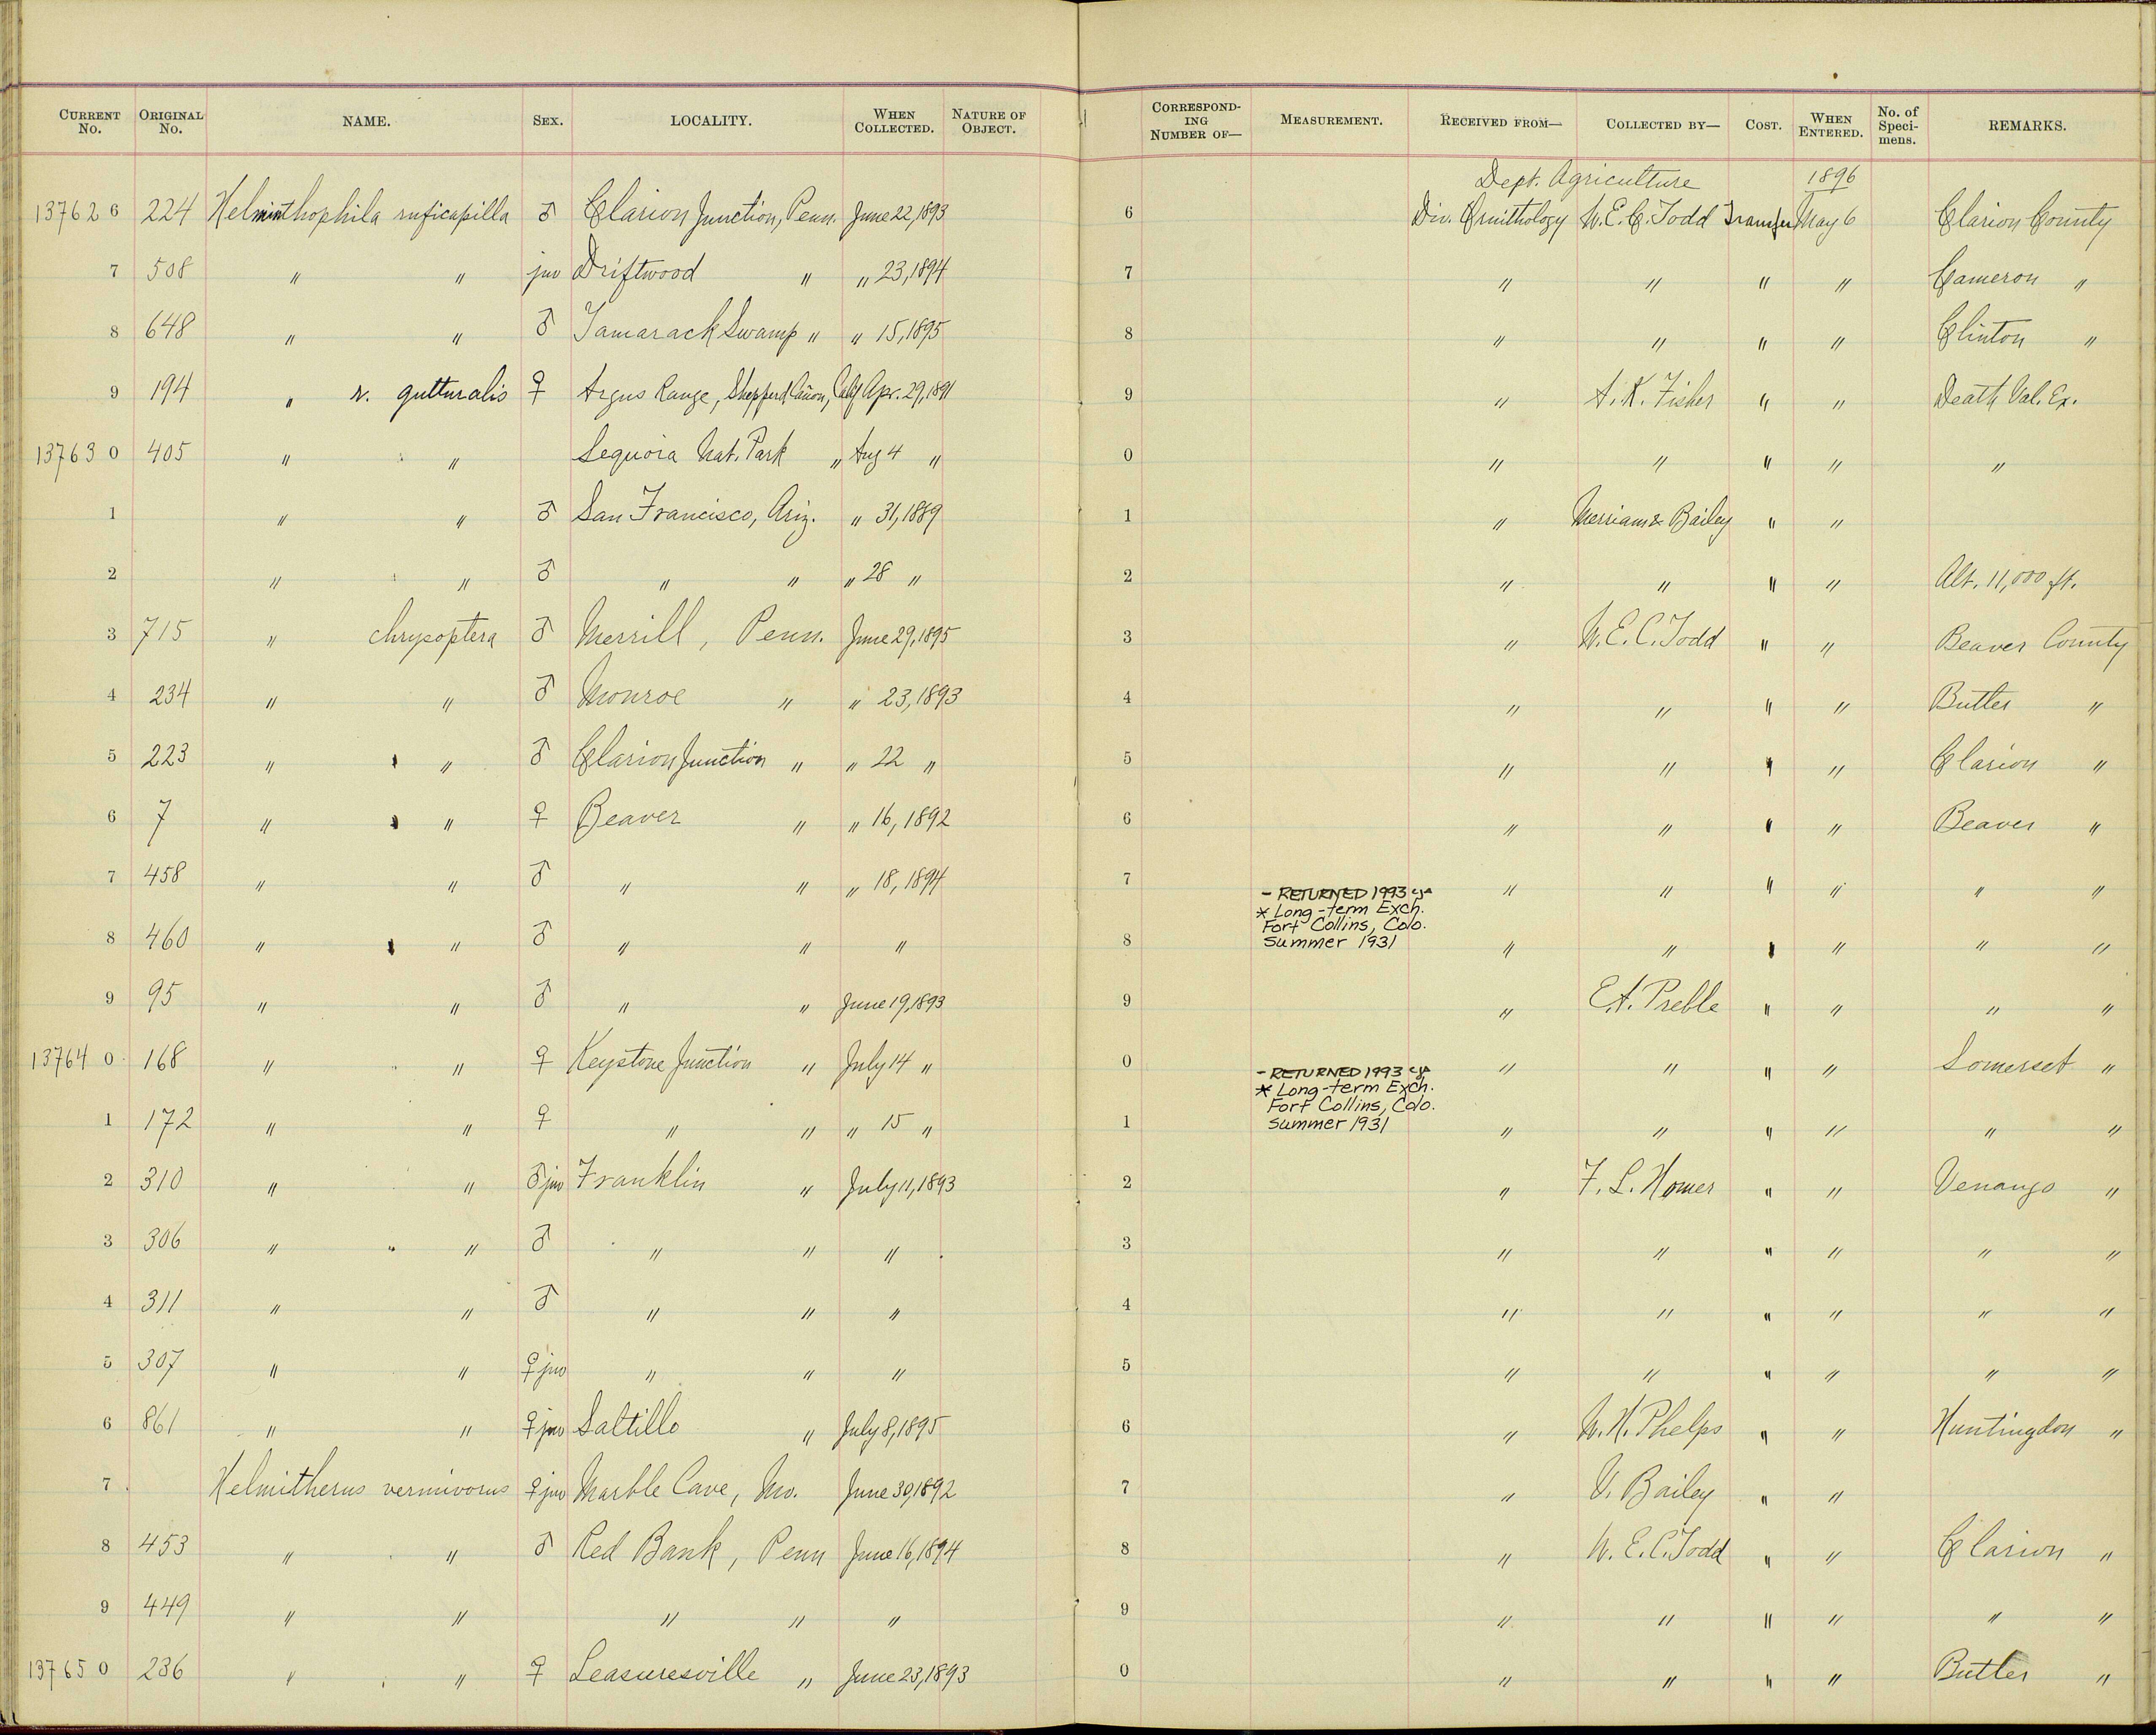 CURRENT No. ORIGINAL No. NAME. SEX. LOCALITY. WHEN COLLECTED. NATURE OF OBJECT. CORRESPONDING NUMBER OF— MEASUREMENT. RECEIVED FROM— COLLECTED BY— COST. WHEN ENTERED. No. of Specimens. REMARKS.
Dept. Agriculture 1896
13762 6 224 Helminthophila ruficapilla ♂ Clarion Junction, Penn. June 22, 1893 6 Div. Ornithology W. E. C. Todd Transfer May 6 Clarion County
7 508 " " juv Driftwood " " 23, 1894 7 " " " " Cameron "
8 648 " " ♂ Tamarack Swamp " " 15, 1895 8 " " " " Clinton "
9 194 " r. gutturalis ♀ Argus Range, Shepperd Cañon, Calif Apr. 29, 1891 9 " A. K. Fisher " " Death Val. Ex.
13763 0 405 " " Sequoia Nat. Park " Aug 4 " 0 " " " " "
1 " " ♂ San Francisco, Ariz. " 31, 1889 1 " Merriam & Bailey " "
2 " " ♂ " " " 28 " 2 " " " " Alt. 11,000 ft.
3 715 " chrysoptera ♂ Merrill, Penn. June 29, 1895 3 " W. E. C. Todd " " Beaver County
4 234 " " ♂ Monroe " " 23, 1893 4 " " " " Butler "
5 223 " " ♂ Clarion Junction " " 22 " 5 " " " " Clarion "
6 7 " " ♀ Beaver " " 16, 1892 6 " " " " Beaver "
7 458 " " ♂ " " " 18, 1894 7 " " " " " "
- RETURNED 1993
* Long-term Exch.
Fort Collins, Colo.
Summer 1931
8 460 " " ♂ " " " 8 " " " " " "
9 95 " " ♂ " " June 19, 1893 9 " E. A. Preble " " " "
13764 0 168 " " ♀ Keystone Junction " July 14 " 0 " " " " Somerset "
- RETURNED 1993
* Long-term Exch.
Fort Collins, Colo.
Summer 1931
1 172 " " ♀ " " " 15 " 1 " " " " " "
2 310 " " ♂ juv Franklin " July 11, 1893 2 " F. L. Homer " " Venango "
3 306 " " ♂ " " " 3 " " " " " "
4 311 " " ♂ " " " 4 " " " " " "
5 307 " " ♀ juv " " " 5 " " " " " "
6 861 " " ♀ juv Saltillo " July 8, 1895 6 " W. H. Phelps " " Huntingdon "
7 Helmitherus vermivorus ♀ juv Marble Cave, Mo. June 30, 1892 7 " V. Bailey " "
8 453 " " ♂ Red Bank, Penn June 16, 1894 8 " W. E. C. Todd " " Clarion "
9 449 " " " " " 9 " " " " " "
13765 0 236 " " ♀ Leasuresville " June 23, 1893 0 " " " " Butler "